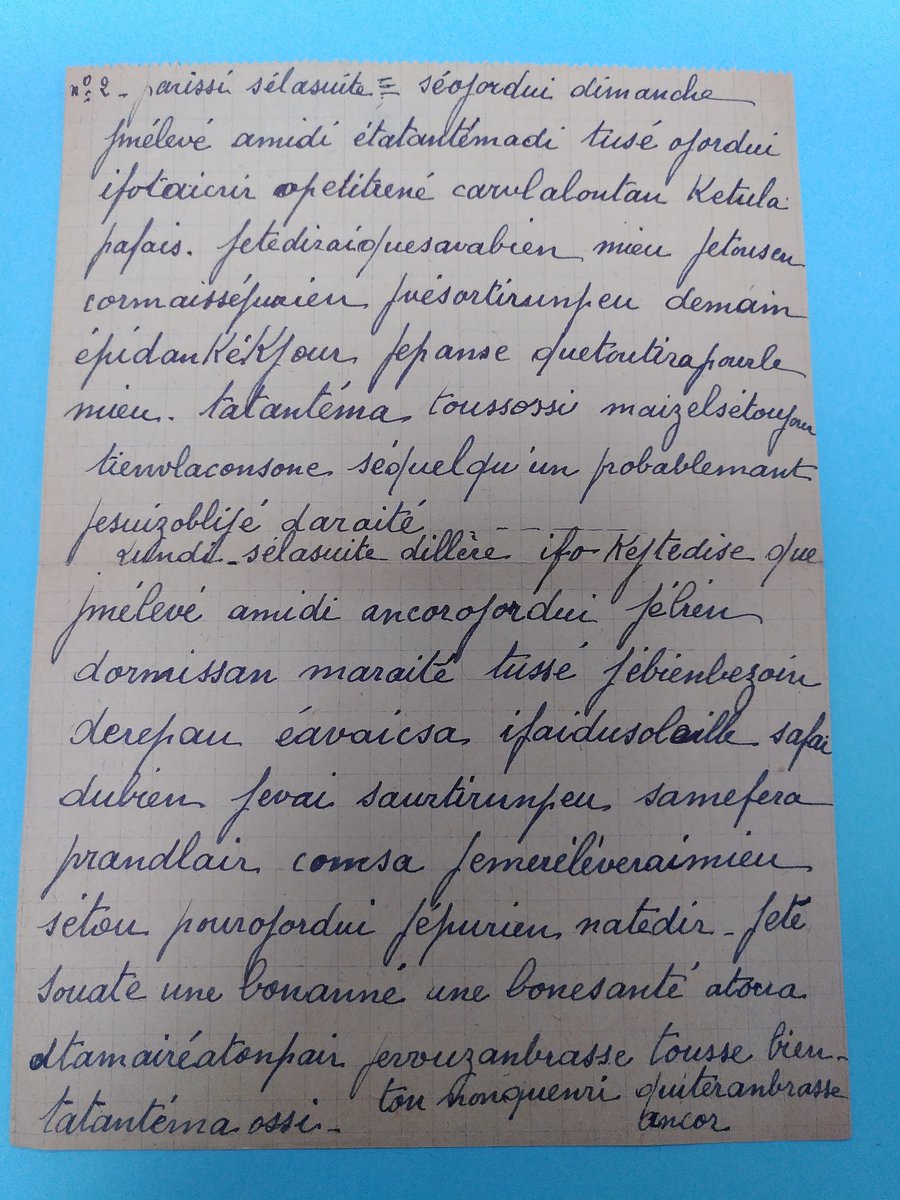 nº 2 - parissi sélasuite = séojordui dimanche
jmélevé amidi étatantémadi tusé ojordui
ifotaicrir opetitrené carvlalontan Ketula
pajais. jetediraiquesavabien mieu jetousen
cormaisséjurien jvésortirunpeu demain
épidankéKjour jepanse quetoutirapourle
mieu. tatantéma toussossi maizelsétoujour
tienvlaconsone séquelqu'un probablemant
jesuizoblijé daraité
Lundi - sélasuite dillère ifo Kejtedise que
jmélevé amidi ancorojordui jébien
dormissan maraité tussé jébienbezoin
derepau éavaicsa ifaidusolaille safai
dubien jevai saurtirunpeu samefera
prandlair comsa jemeréléveraimieu
sétou pourojordui jépurien natedir - jeté
souate une bonanné une bonesanté atoua
atamairéatonpair jevouzanbrasse tousse bien -
tatantéma ossi - ton nonquenri quiteranbrasse
ancor